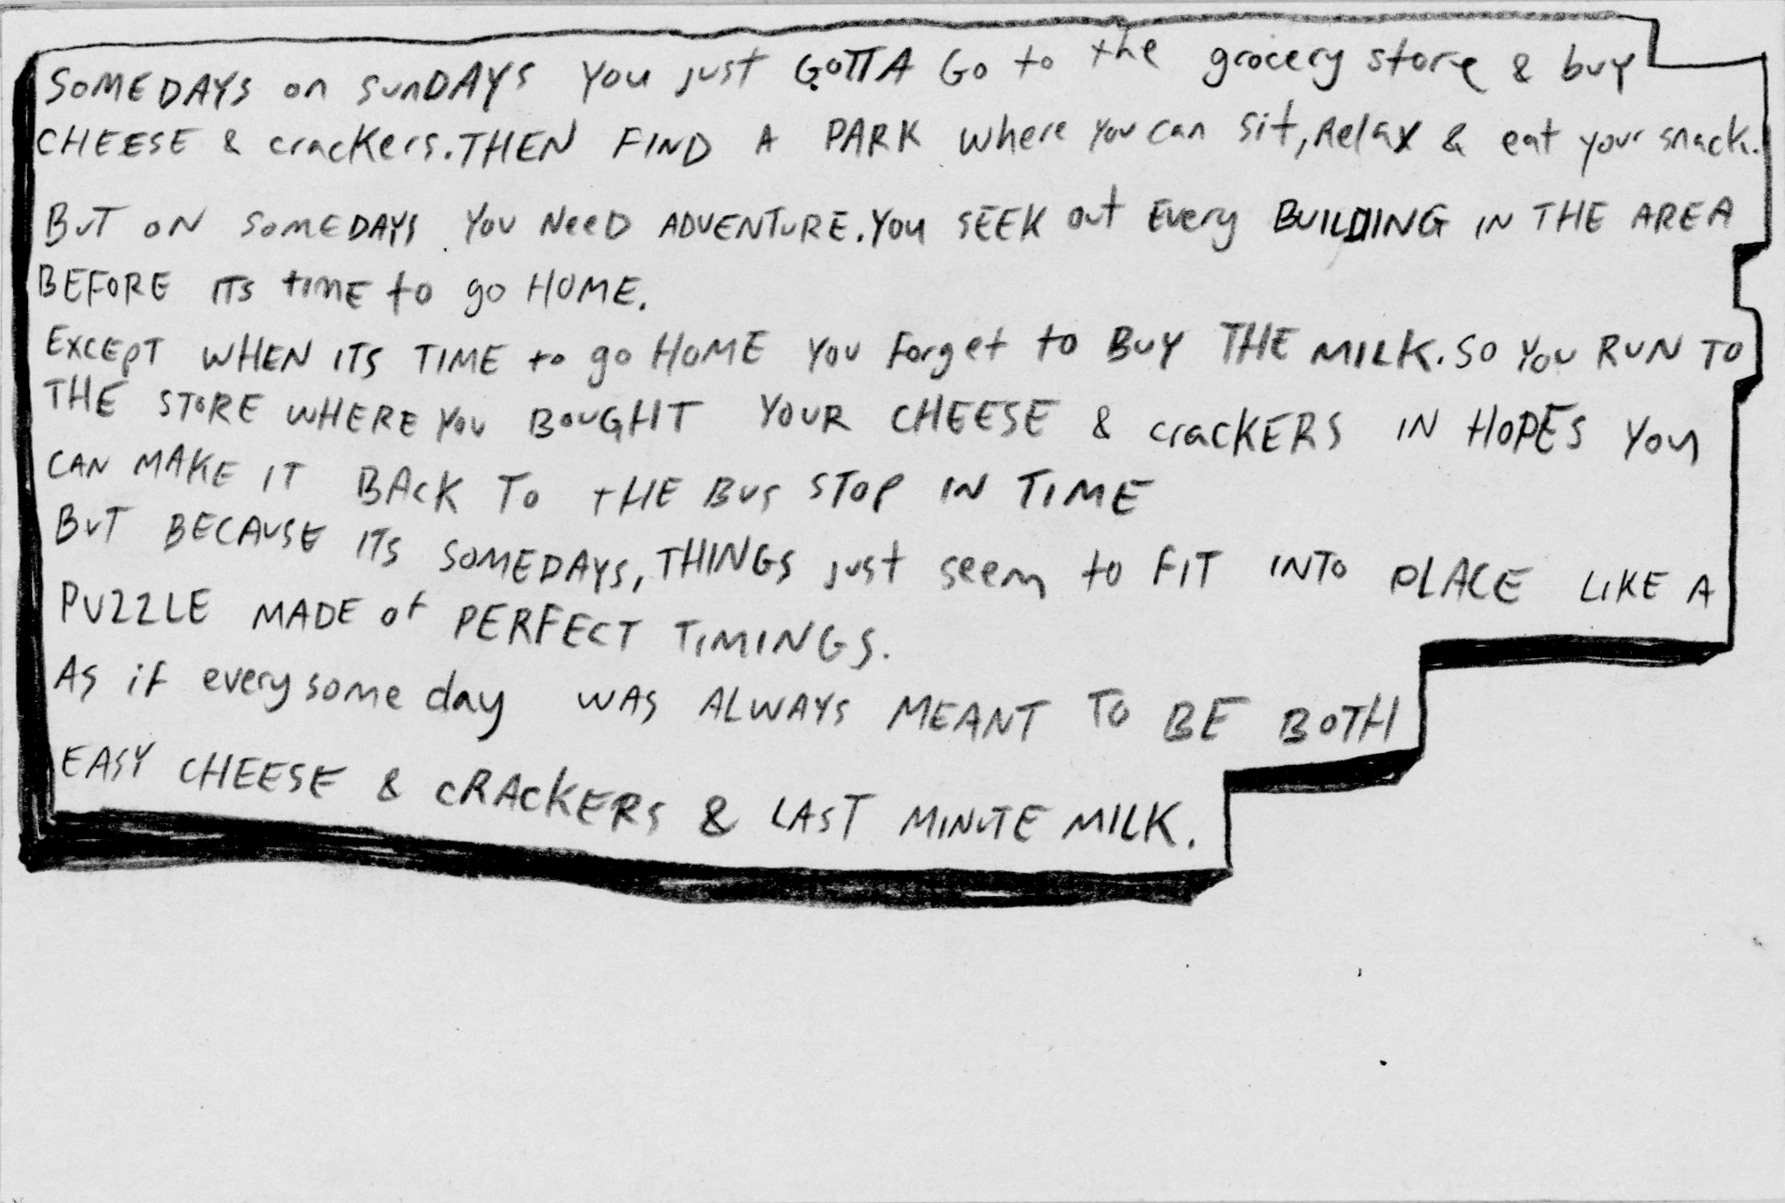 SOMEDAYS on SunDAYS You just GOTTA Go to the grocery store & buy
CHEESE & crackers. THEN FIND A PARK where you can sit, Relax & eat your snack.
BuT ON SOMEDAYS You NeeD ADVENTURE. You SEEK out Every BUILDING IN THE AREA
BEFORE ITS tIME to go HOME.
EXCEPT WHEN ITS TIME to go HOME You Forget to BuY THE MILK. SO YOU RUN TO
THE STORE WHERE YOU BOUGHT YOUR CHEESE & cracKERS IN HOPES You
CAN MAKE IT BACK TO tHE Bus STOP IN TIME
BUT BECAUSE ITS SOMEDAYS, THINGS just seem to FIT INTO PLACE LIKE A
PUZZLE MADE of PERFECT TIMINGS.
AS if every some day WAS ALWAYS MEANT TO BE BOTH
EASY CHEESE & CRACKERS & LAST MINUTE MILK.